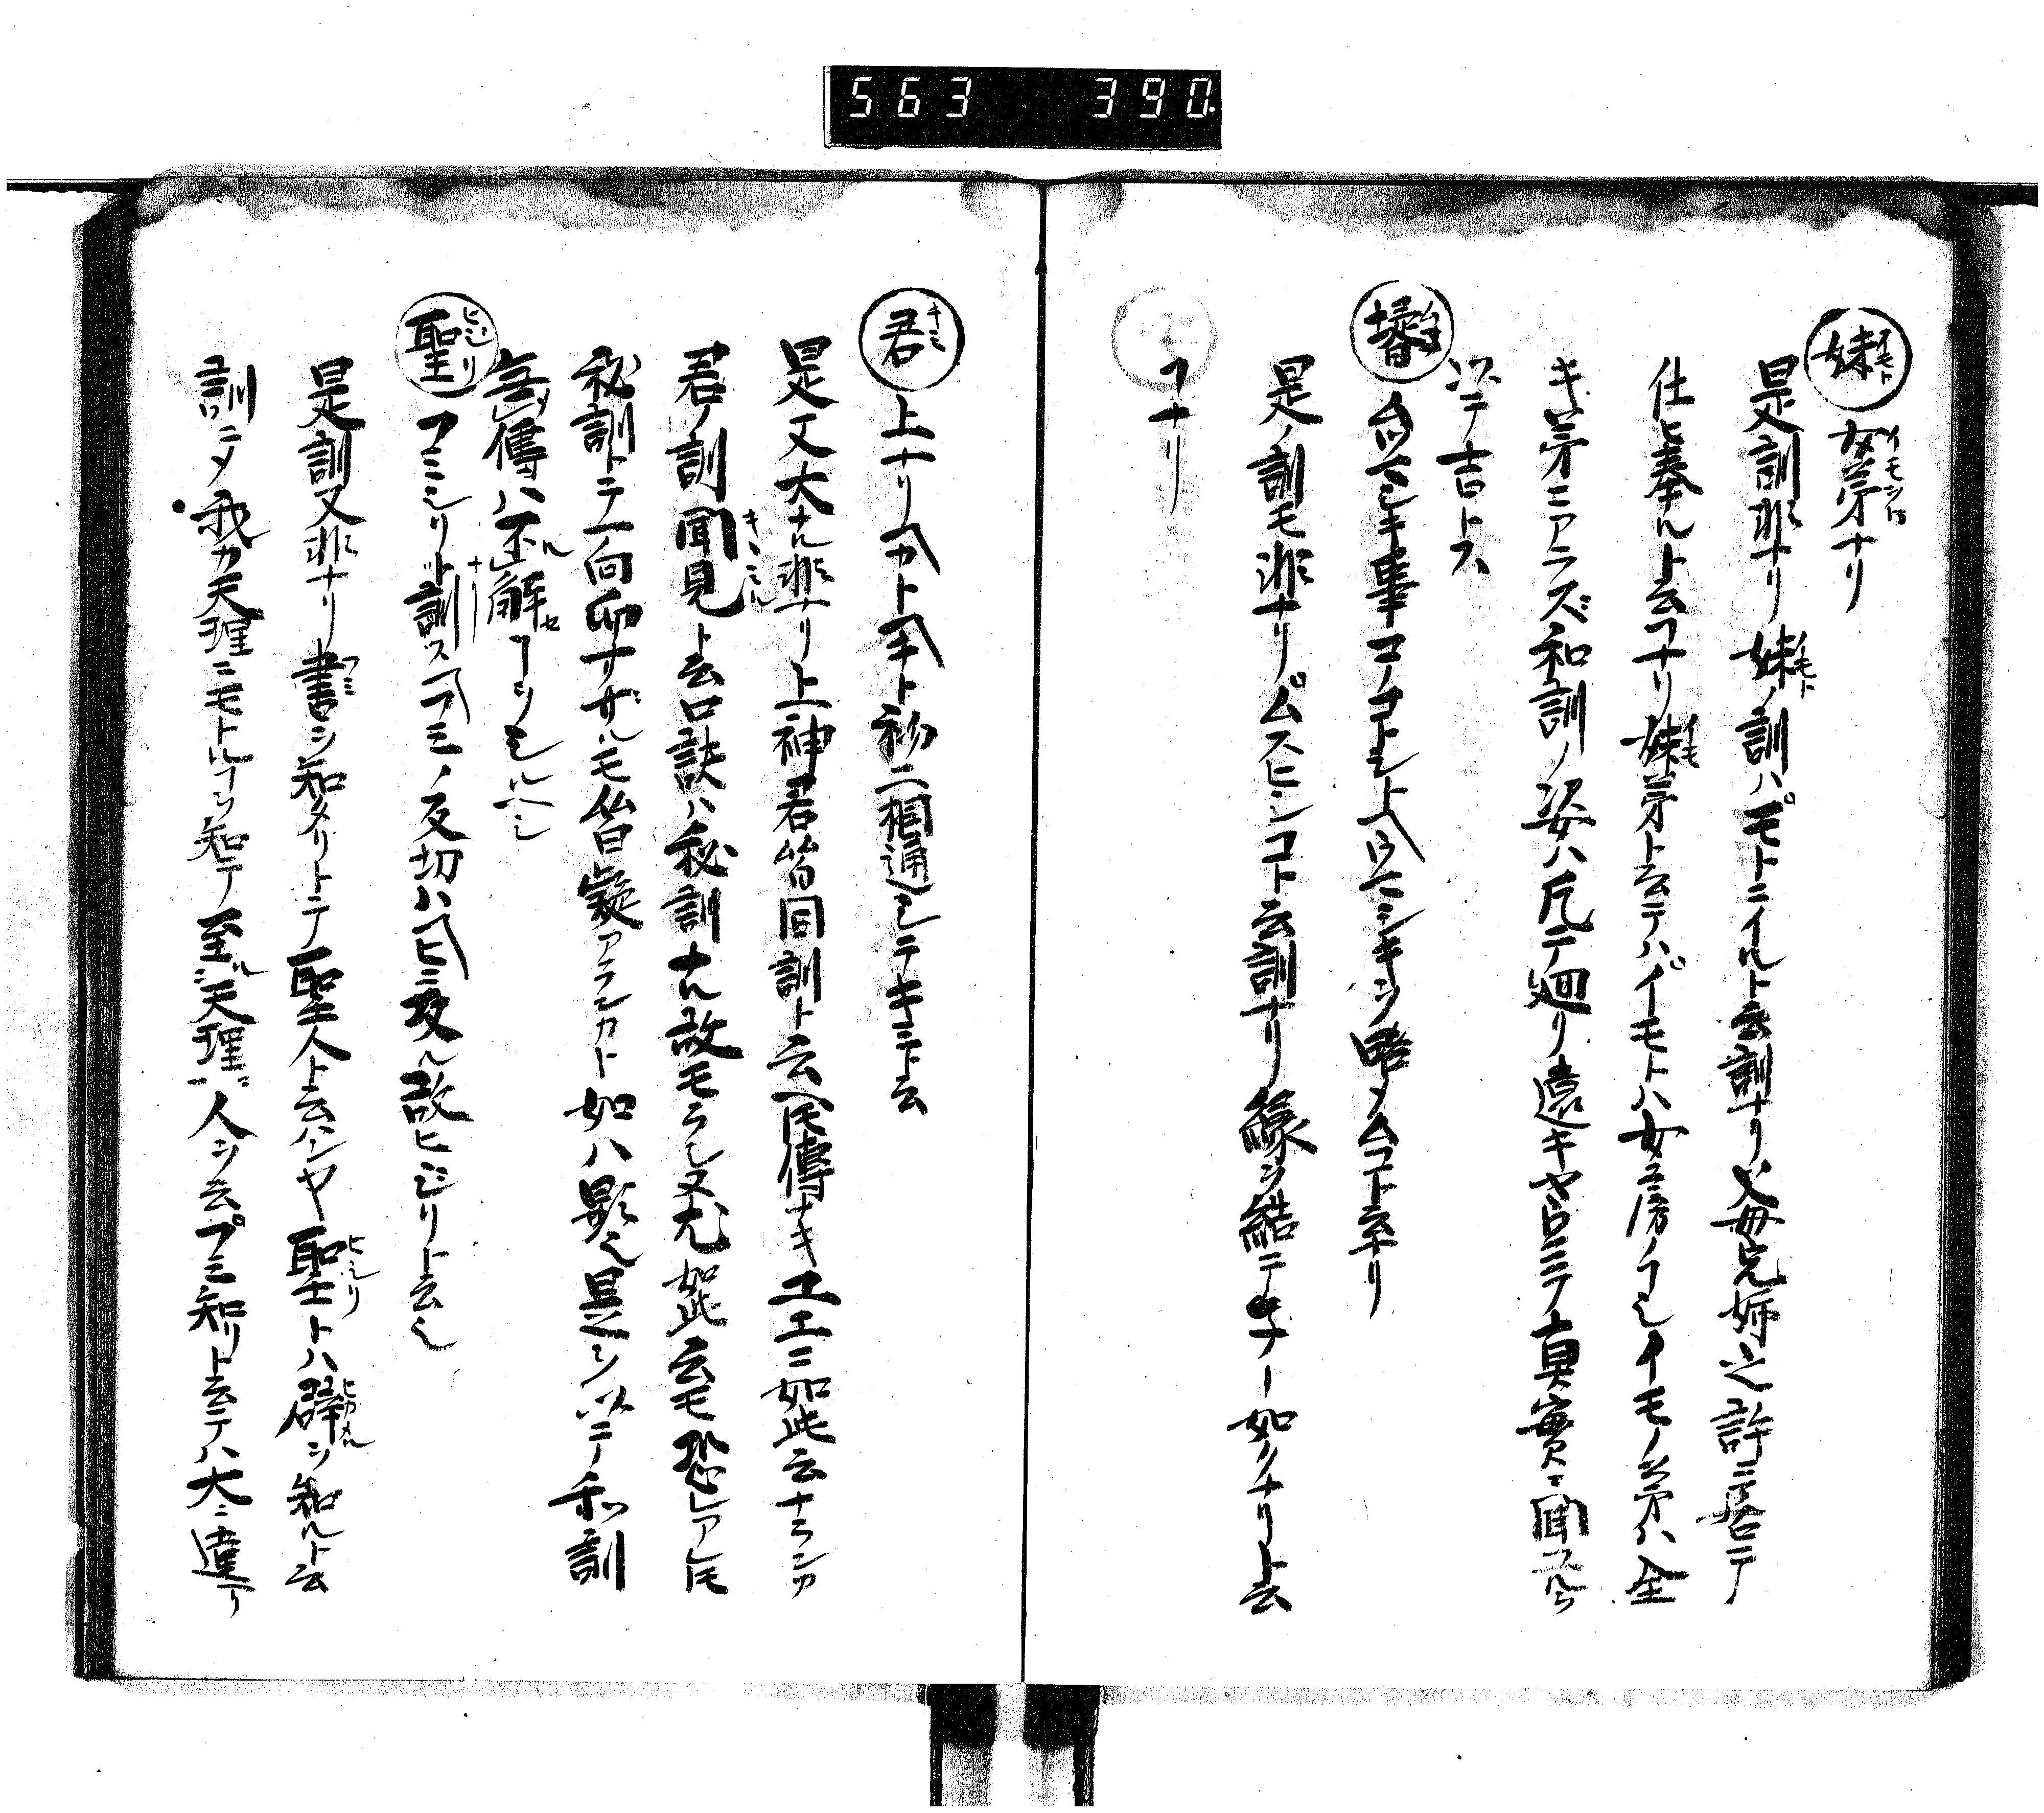 563 390
妹 女弟ナリ
是訓非ナリ妹ノ訓ハモトニイルト云訓ナリ父母兄姉之許ニ居テ
仕ヒ奉ルト云ヿナリ妹弟ト云テハイモトハ女房ノヿ也イモノ弟ハ全
キ弟ニアラズ和訓ノ姿ハ凡テ廻リ遠キヤウニテ真實ニ聞ユル
以テ吉トス
壻 ムツマシキ事コノコトシ上ツマシキヲ略メムコト云ナリ
是ノ訓モ非ナリムスヒシコト云訓ナリ縁ヲ結テ子ノ如クナリト云
ヿナリ
君 上ナリカトキト初二相通シテキミト云
是又大ナル非ナリ上神君皆同訓ト云傳ナキユエニ如此云ナランカ
君ノ訓聞見ト云口訣ハ秘訓ナル故モラシ又尤如此云モ恐レアレトモ
秘訓トテ一向印サザルモ皆疑アランカト如ハ顕也是ヲ以テ和訓
無傳ハ不解ヿヲシルヘシ
聖 フミシリト訓スフミノ反切ハヒ二反ル故ヒジリト云也
是訓又非ナリ書ヲ知タリトテ聖人ト云ハンヤ聖トハ癖ヲ知ルト云
訓ニメ我カ天理ニモトルヿヲ知テ至天理人ヲ云フミ知リト云テハ大ニ違テリ